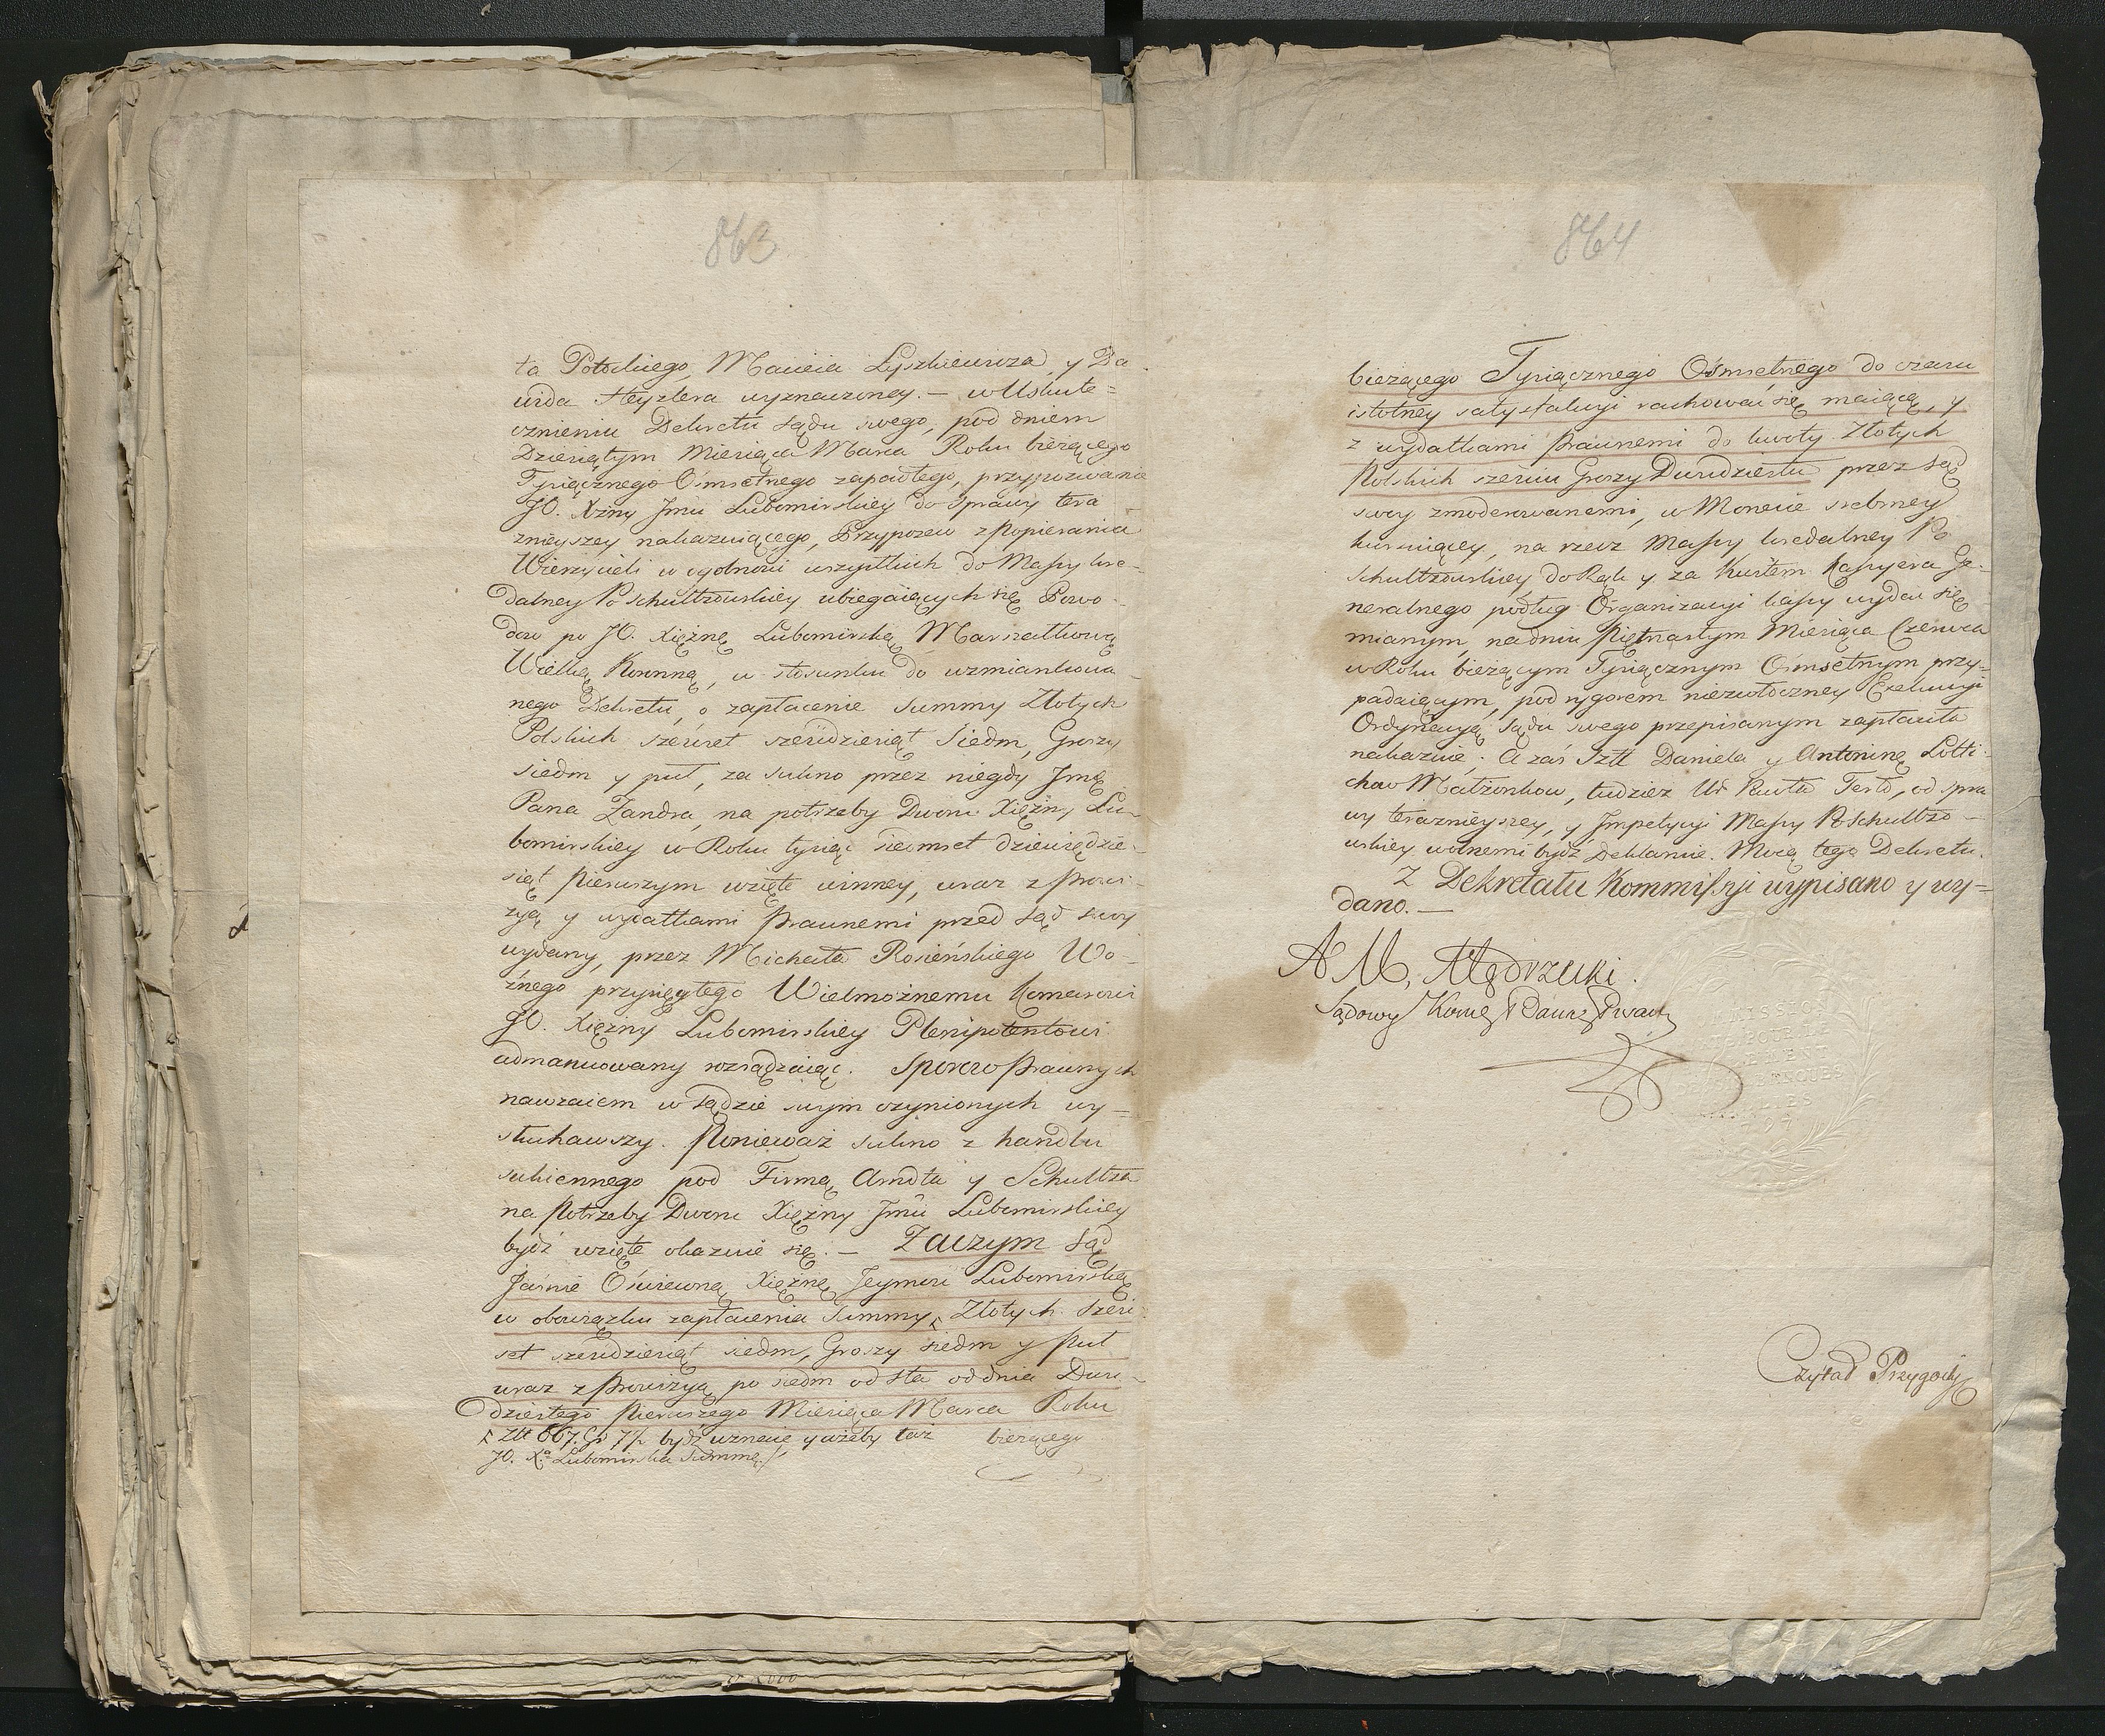 863
ta Potockiego, Macieia Lyszkiewicza, y Da
wida Heyzlera wyznaczoney. — w Uskute=
cznieniu Dekretu Sądu swego, pod dniem
Dziesiątym Miesiąca Marca Roku bieżącego
Tysiącznego Ośmsetnego zapadłego, przypozwanie
JO. Xżny Jmci Lubomirskiey do Sprawy tera
znieyszey nakazuiącego, Przypozew z Popierania
Wierzycieli w ogolności wszystkich do Massy kre-
dalney Po Schultzowskiey ubiegaiących się Powo-
dow po JO. Xiężnę Lubomirską Marszałkową
Wielką Koronną, w stosunku do wzmiankowa-
nego Dekretu, o zapłacenie Summy Złotych
Polskich sześćset sześćdziesiąt Siedm, Groszy
siedm y puł, za sukno przez niegdy Jmć
Pana Zandra, na potrzeby Dworu Xiężny Lu-
bomirskiey w Roku tysiąc siedmset dziewiędzie-
siąt Pierwszym wzięte winney, wraz z Prowi-
zyą y wydatkami Prawnemi przed Sąd swoy
wydany, przez Michała Rosieńskiego Wo-
źnego przysięgłego Wielmożnemu Komarowi
JO. Xiężny Lubomirskiey Plenipotentowi
admanuowany rozsądzaiąc. Sporow Prawnych
nawzaiem w Sądzie swym czynionych wy-
słuchawszy. Ponieważ sukno z handlu
sukiennego pod Firmą Arndta y Schultza
na Potrzeby Dworu Xiężny Jmci Lubomirskiey
bydź wzięte okazuie się. — Zaczym Sąd
Jaśnie Oświeconą Xiężnę Jeymość Lubomirską
w obowiązku zapłacenia Summy Złotych Sześć
set sześćdziesiąt siedm, Groszy siedm y puł
wraz z Prowizyą po siedm od sta od dnia Dwu-
dziestego Pierwszego Miesiąca Marca Roku
Złt 667. Gr 7½ bydź uznaie y ażeby taż
JO. Xa Lubomirska Summę/
bieżącego
864
bieżącego Tysiącznego Ośmsetnego do czasu
istotney satysfakcyi rachować się maiącą, y
z wydatkami Prawnemi do kwoty Złotych
Polskich sześciu Groszy Dwudziestu przez Sąd
swoy zmoderowanemi, w Monecie srebrney
kursuiącey, na rzecz Massy kredalney Po
Schultzowskiey do Rąk y za Kwitem Kassyera Je-
neralnego podług Organizacyi kassy wydać się
mianym, na dniu Piętnastym Miesiąca Czerwca
w Roku bieżącym Tysiącznym Ośmsetnym przy-
padaiącym, pod rygorem niezwłoczney Exekucyi
Ordynacyą Sądu swego przepisanym zapłaciła
nakazuie; A zaś Szll Daniela y Antoninę Lotti-
chow Małżonkow, tudziez Ur Karola Tesla, od spra
wy teraznieyszey, y Impetycyi Massy Po Schultzo-
wskiey wolnemi bydź Deklaruie. Mocą tego Dekretu.
Z Dekretału Kommissyi wypisano y wy-
dano. —
A M, Mędrzucki.
Sądowy Komę Banc Prwatn
MISSION
MENT
BANQUES
1797
Czytał Przygodzky